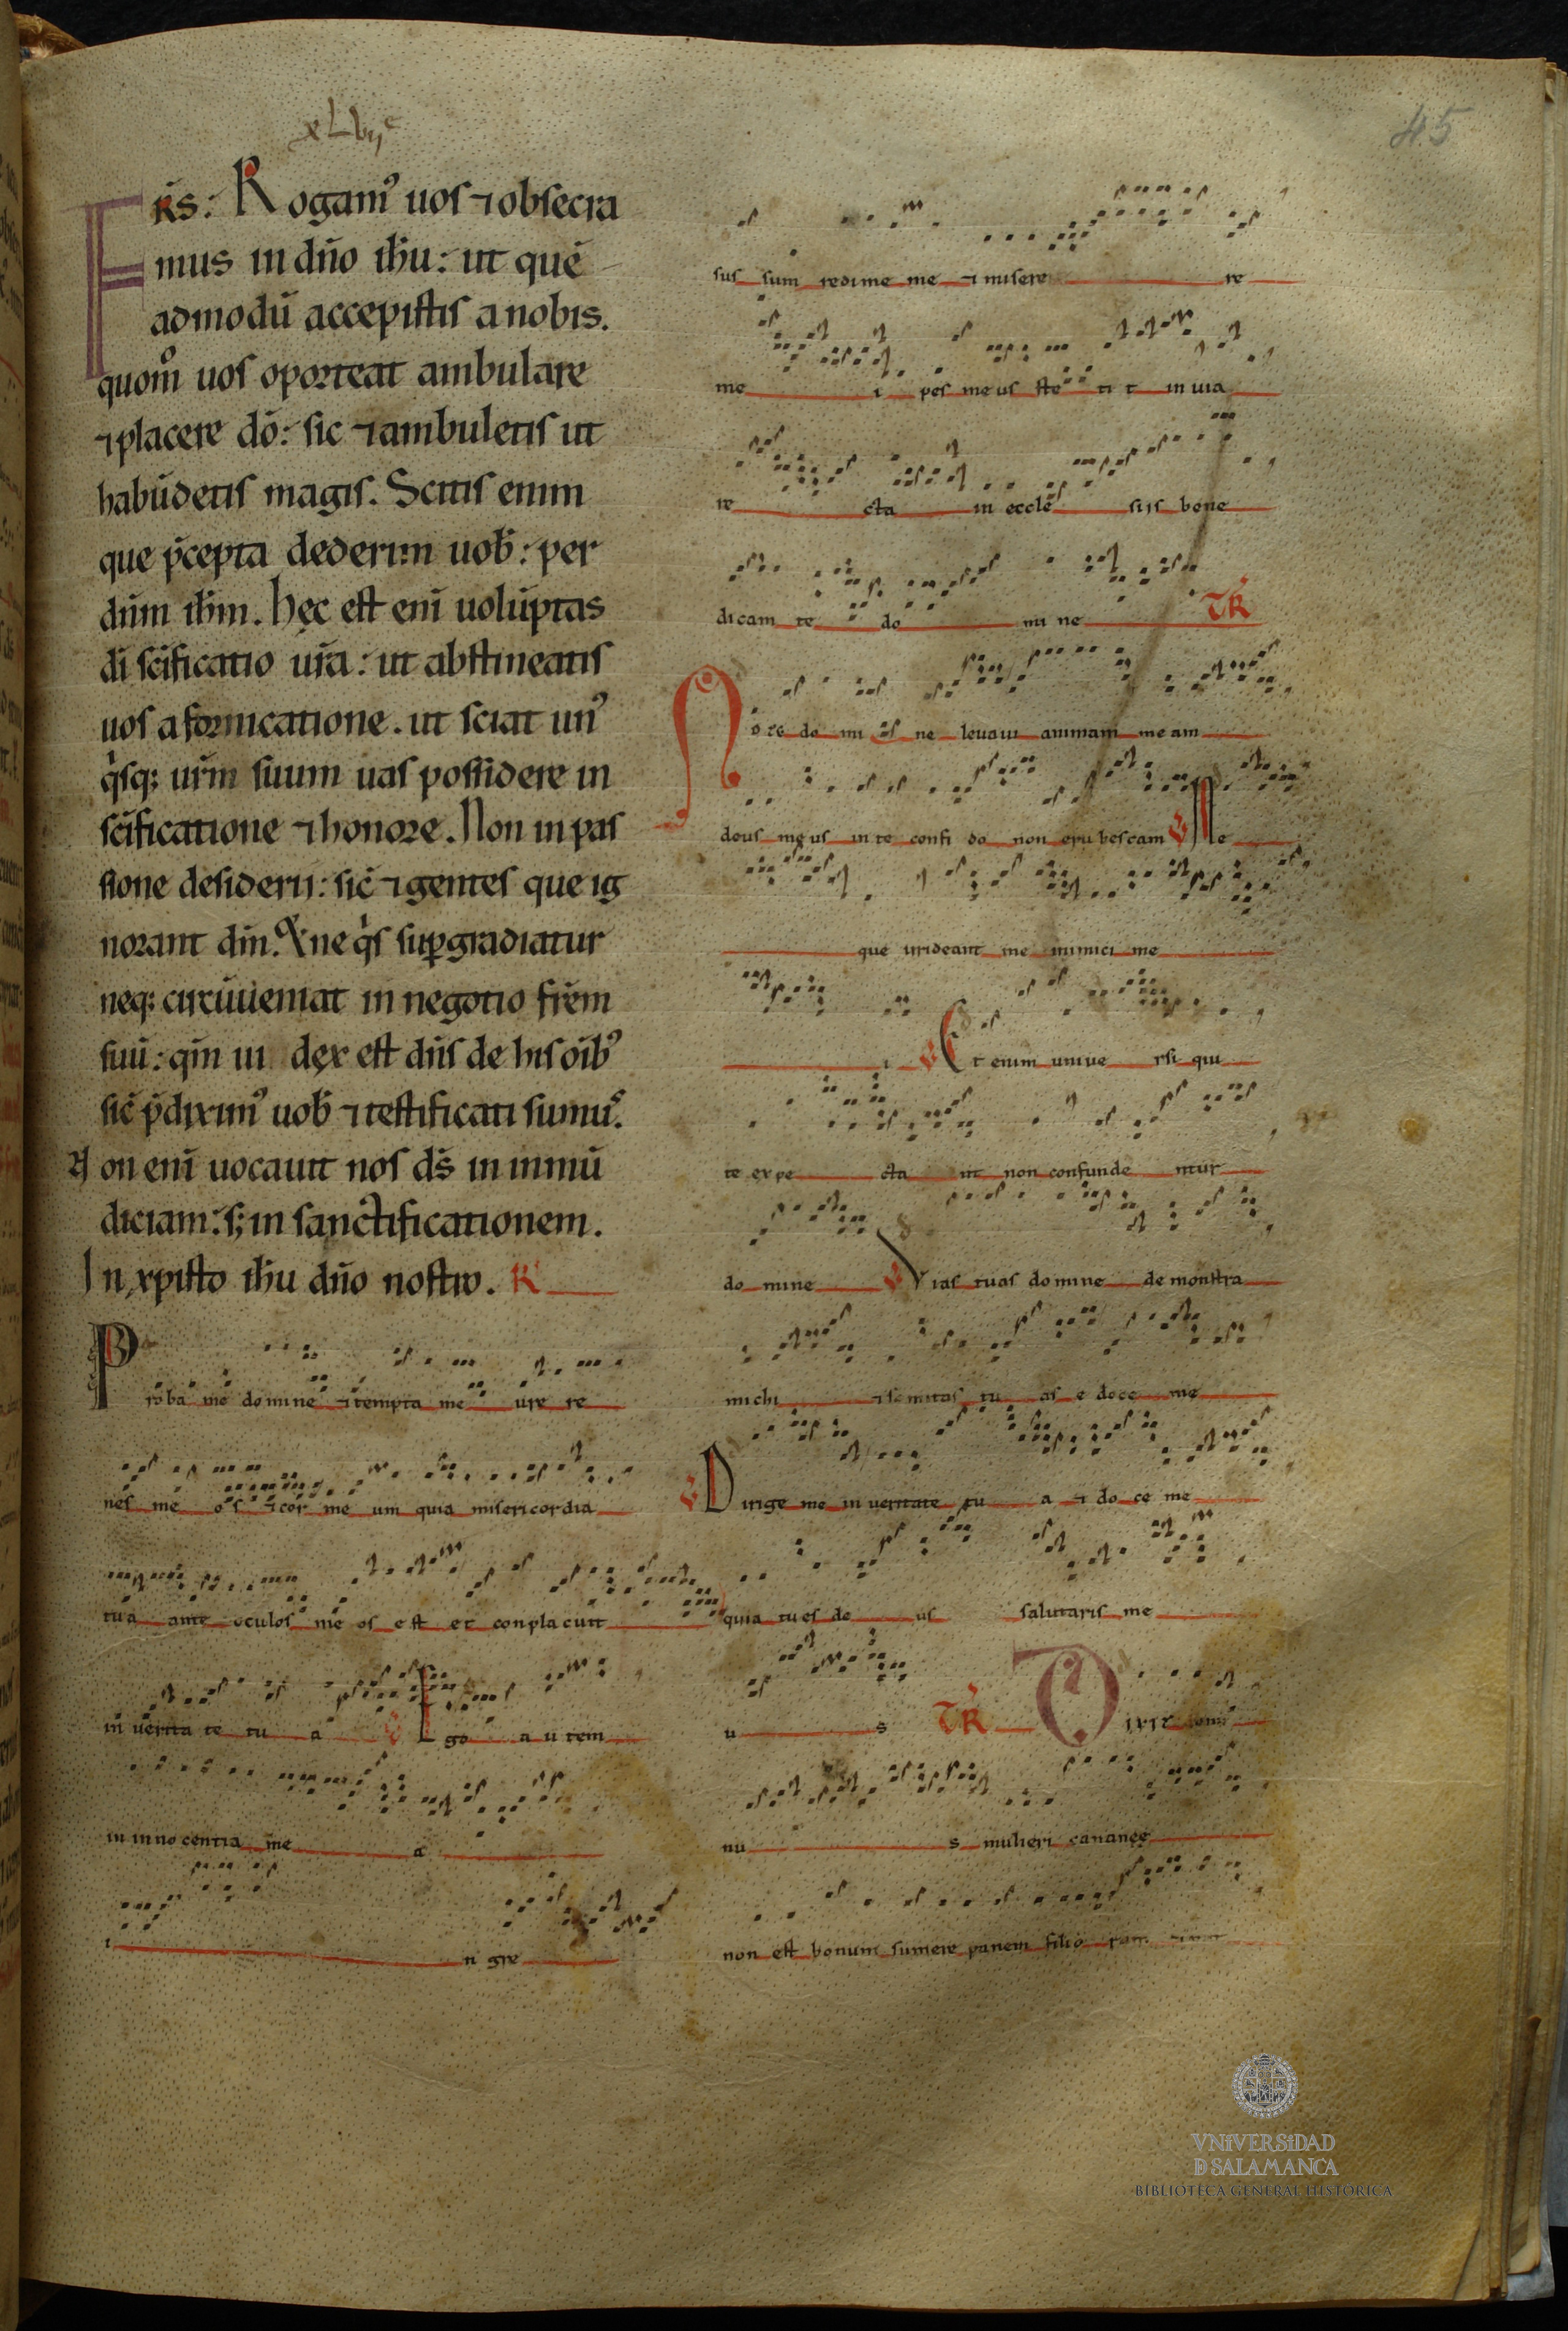 xLvijᵉ
45
FRS: Rogam᾽ uos ⁊ obsecra
mus in dn̄o ih̄u: ut quē
admodū accepistis a nobis.
quom̊ uos oporteat ambulare
⁊ placere dō: sic ⁊ ambuletis ut
habūdetis magis. Scitis enim
que p̄cepta dederim uob̄: per
dn̄m ih̄m. hęc est eni̅ uolūptas
di sc̄ificatio ur̄a: ut abstineatis
uos a fornicatione. ut sciat un᾽
qͥsq; ur̄m suum uas possidere in
sc̄ificatione ⁊ honore. Non in pas
sione desiderii: sic̄ ⁊ gentes que ig
norant dm̄. Et ne qͥs sup̱gradiatur
neq; circūueniat in negotio fr̄em
suū: qm̄ iu dęx est dn̄s de his oīb᾽
sic̄ p̄dixim᾽ uob̄ ⁊ testificati sumu᾽.
Non eni̅ uocauit nos ds̄ in inmū
diciam: s; in sanctificationem.
In xpisto ih̄u dn̄o nostro. R̄
Proba me domine ⁊ tempta me ure re
nes me os ⁊ cor me um quia misericordia
tua ante oculos me os est et conplacuit
in verita te tu a V Ego a u tem
in inno centia me a
i n gre
sus sum redime me ⁊ misere re
me i pes me us ste ti t in uia
re cta in ecclē siis bene
dicam te do mi ne TR̄
Ad te do mi ne leuaui animam meam
deus meus in te confi do non erubescam V Ne
que irrideant me inimici me
i V Et enim uniue rsi qui
te expe cta nt non confunde ntur
do mine V Vias tuas domine demonstra
michi ⁊ semitas tu as e doce me
V Dirige me in ueritate tu a ⁊ do ce me
quia tu es de us salutaris me
u s TR̄ Dixit
nu s mulieri cananęę
non est bonum sumere panem filio
VNiVERSiDAD
D SALAMANCA
BIBLIOTECA GENERAL HISTORICA